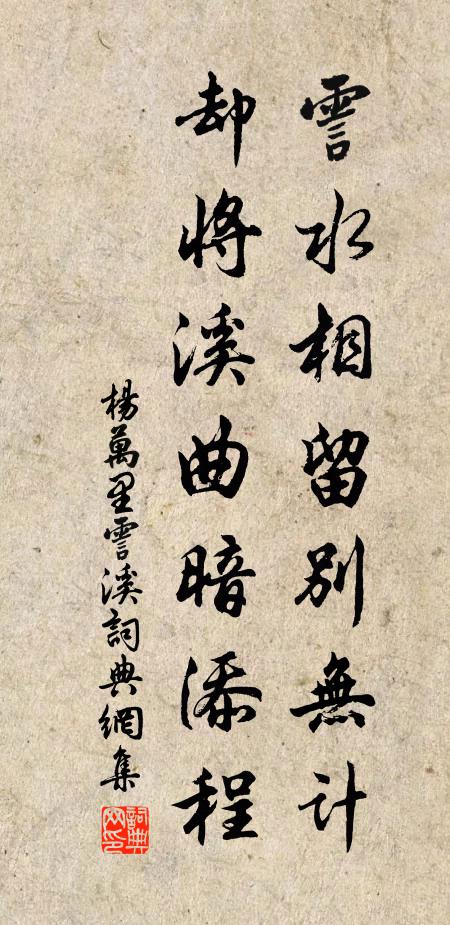 霅水相留別無計
却將溪曲暗添程
楊萬里霅溪詞典網集
詞典网印